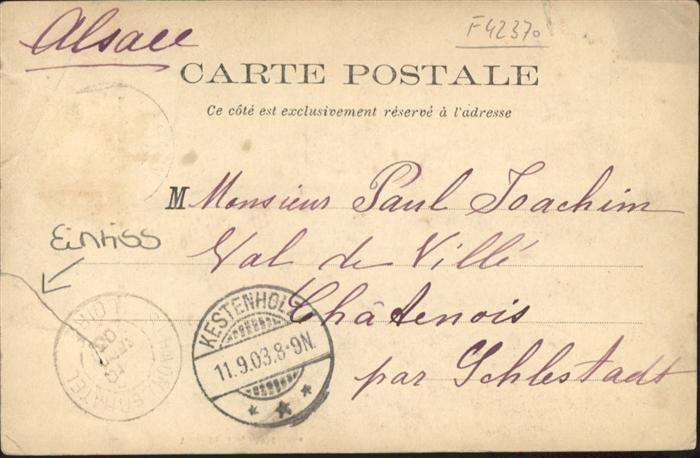 Alsace
F42370
CARTE POSTALE
Ce côté est exclusivement réservé à l'adresse
M Monsieur Paul Joachim
Val de Villé
Einriss
Châtenois
KESTENHOLZ
11.9.03.8-9N.
par Schlestadt